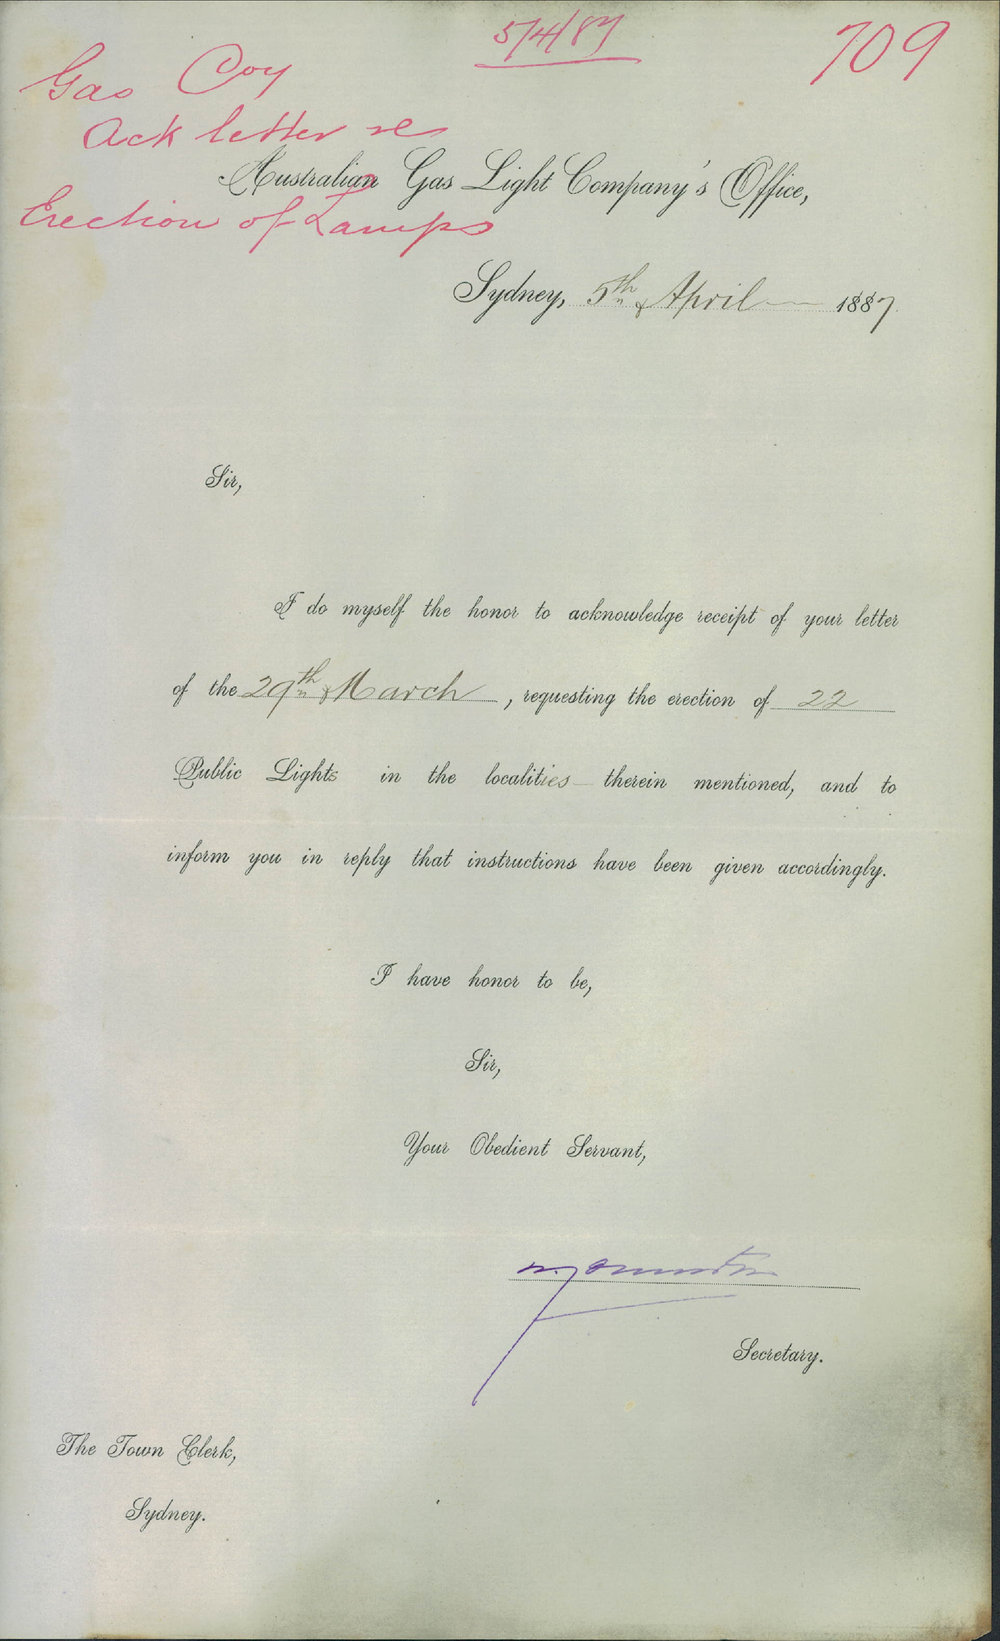 5/4/87
709
Gas Coy
Ack letter re
Erection of Lamps
Australian Gas Light Company's Office,
Sydney, 5th April 1887
Sir,
I do myself the honor to acknowledge receipt of your letter
of the 29th March, requesting the erection of 22
Public Lights in the localities therein mentioned, and to
inform you in reply that instructions have been given accordingly.
I have honor to be,
Sir,
Your Obedient Servant,
Secretary.
The Town Clerk,
Sydney.